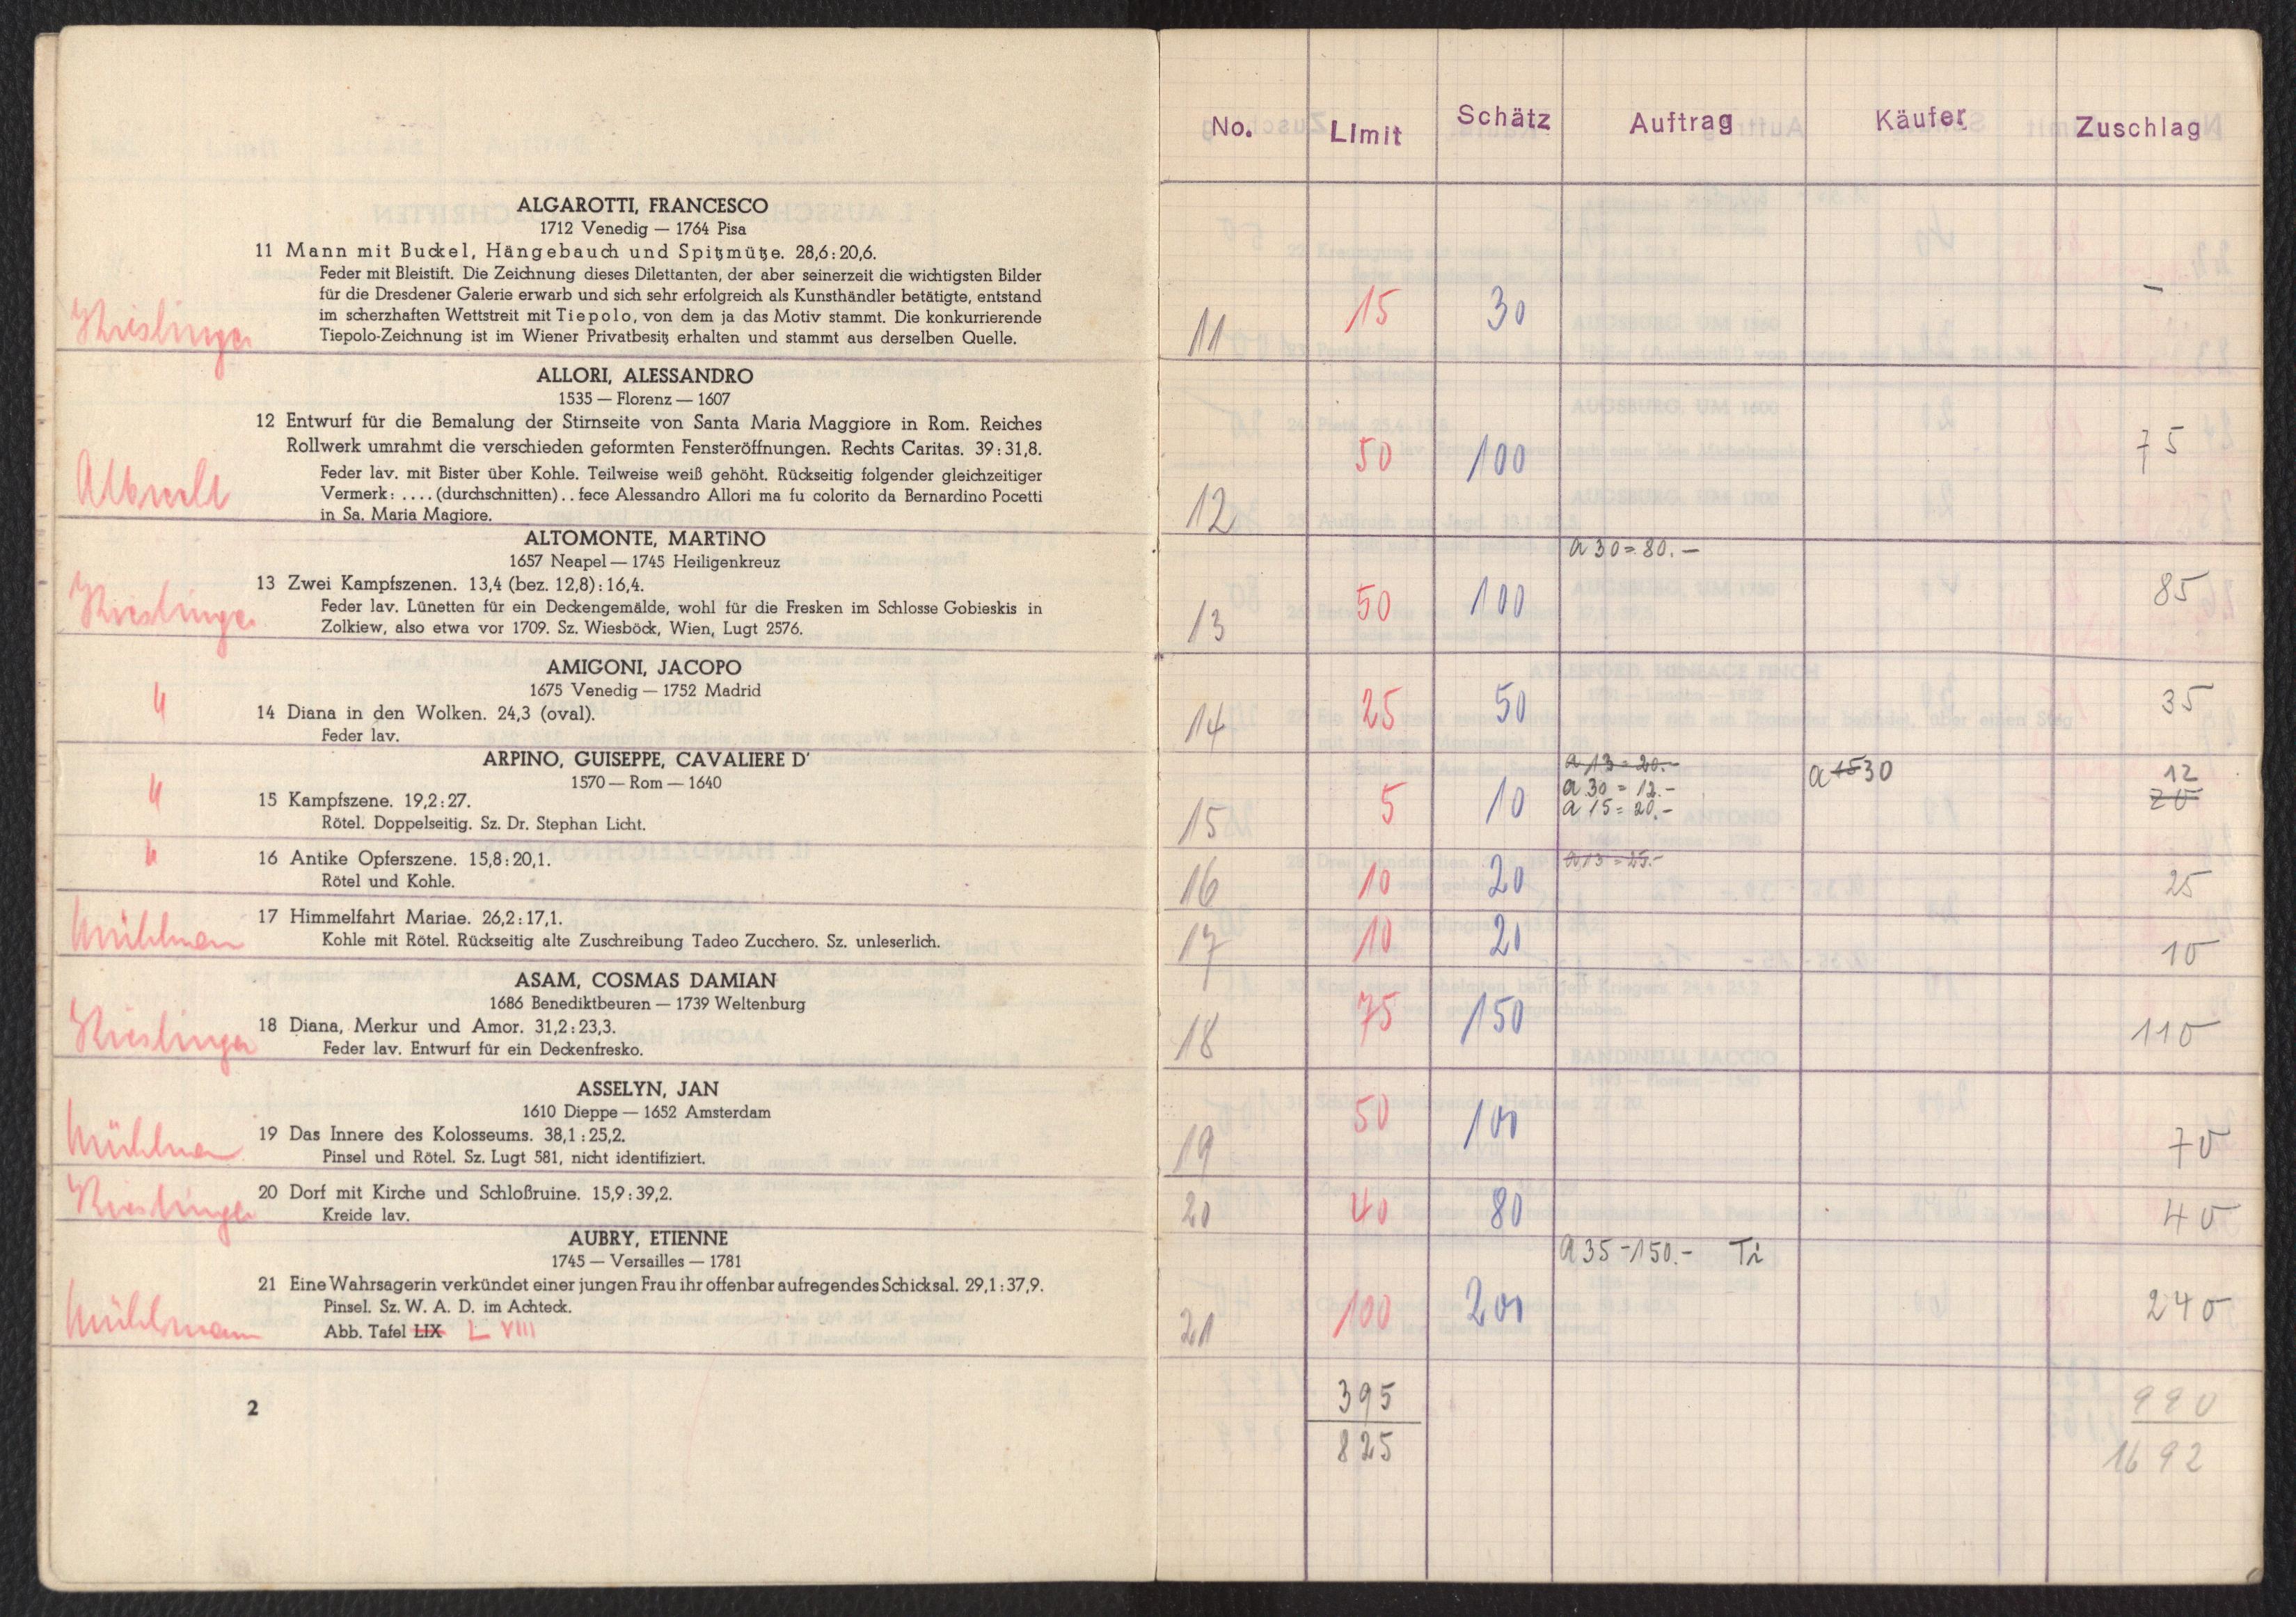 ALGAROTTI, FRANCESCO
1712 Venedig — 1764 Pisa
11 Mann mit Buckel, Hängebauch und Spitzmütze. 28,6 : 20,6.
Feder mit Bleistift. Die Zeichnung dieses Dilettanten, der aber seinerzeit die wichtigsten Bilder
für die Dresdener Galerie erwarb und sich sehr erfolgreich als Kunsthändler betätigte, entstand
im scherzhaften Wettstreit mit Tiepolo, von dem ja das Motiv stammt. Die konkurrierende
Tiepolo-Zeichnung ist im Wiener Privatbesitz erhalten und stammt aus derselben Quelle.
Kieslinger
ALLORI, ALESSANDRO
1535 — Florenz — 1607
12 Entwurf für die Bemalung der Stirnseite von Santa Maria Maggiore in Rom. Reiches
Rollwerk umrahmt die verschieden geformten Fensteröffnungen. Rechts Caritas. 39 : 31,8.
Feder lav. mit Bister über Kohle. Teilweise weiß gehöht. Rückseitig folgender gleichzeitiger
Vermerk: .... (durchschnitten) .. fece Alessandro Allori ma fu colorito da Bernardino Pocetti
in Sa. Maria Magiore.
ALTOMONTE, MARTINO
1657 Neapel — 1745 Heiligenkreuz
13 Zwei Kampfszenen. 13,4 (bez. 12,8) : 16,4.
Feder lav. Lünetten für ein Deckengemälde, wohl für die Fresken im Schlosse Gobieskis in
Zolkiew, also etwa vor 1709. Sz. Wiesböck, Wien, Lugt 2576.
Kieslinger
AMIGONI, JACOPO
1675 Venedig — 1752 Madrid
14 Diana in den Wolken. 24,3 (oval).
Feder lav.
"
ARPINO, GUISEPPE, CAVALIERE D'
1570 — Rom — 1640
15 Kampfszene. 19,2 : 27.
Rötel. Doppelseitig. Sz. Dr. Stephan Licht.
"
16 Antike Opferszene. 15,8 : 20,1.
Rötel und Kohle.
"
17 Himmelfahrt Mariae. 26,2 : 17,1.
Kohle mit Rötel. Rückseitig alte Zuschreibung Tadeo Zucchero. Sz. unleserlich.
Mühlmann
ASAM, COSMAS DAMIAN
1686 Benediktbeuren — 1739 Weltenburg
18 Diana, Merkur und Amor. 31,2 : 23,3.
Feder lav. Entwurf für ein Deckenfresko.
Kieslinger
ASSELYN, JAN
1610 Dieppe — 1652 Amsterdam
19 Das Innere des Kolosseums. 38,1 : 25,2.
Pinsel und Rötel. Sz. Lugt 581, nicht identifiziert.
Mühlman
20 Dorf mit Kirche und Schloßruine. 15,9 : 39,2.
Kreide lav.
Kieslinger
AUBRY, ETIENNE
1745 — Versailles — 1781
21 Eine Wahrsagerin verkündet einer jungen Frau ihr offenbar aufregendes Schicksal. 29,1 : 37,9.
Pinsel. Sz. W. A. D. im Achteck.
Abb. Tafel LIX L VIII
Mühlmann
2
No. Limit Schätz Auftrag Käufer Zuschlag
11 15 30 –
12 50 100 75
13 50 100 a 30 = 80.– 85
14 25 50 35
15 5 10 a 13 = 20.– a 15 30 12
a 30 = 12.– 20
a 15 = 20.–
16 10 20 a 13 = 25.– 25
17 10 20 10
18 75 150 110
19 50 100 70
20 40 80 40
21 100 200 a 35 - 150.– Ti 240
395 990
825 1692